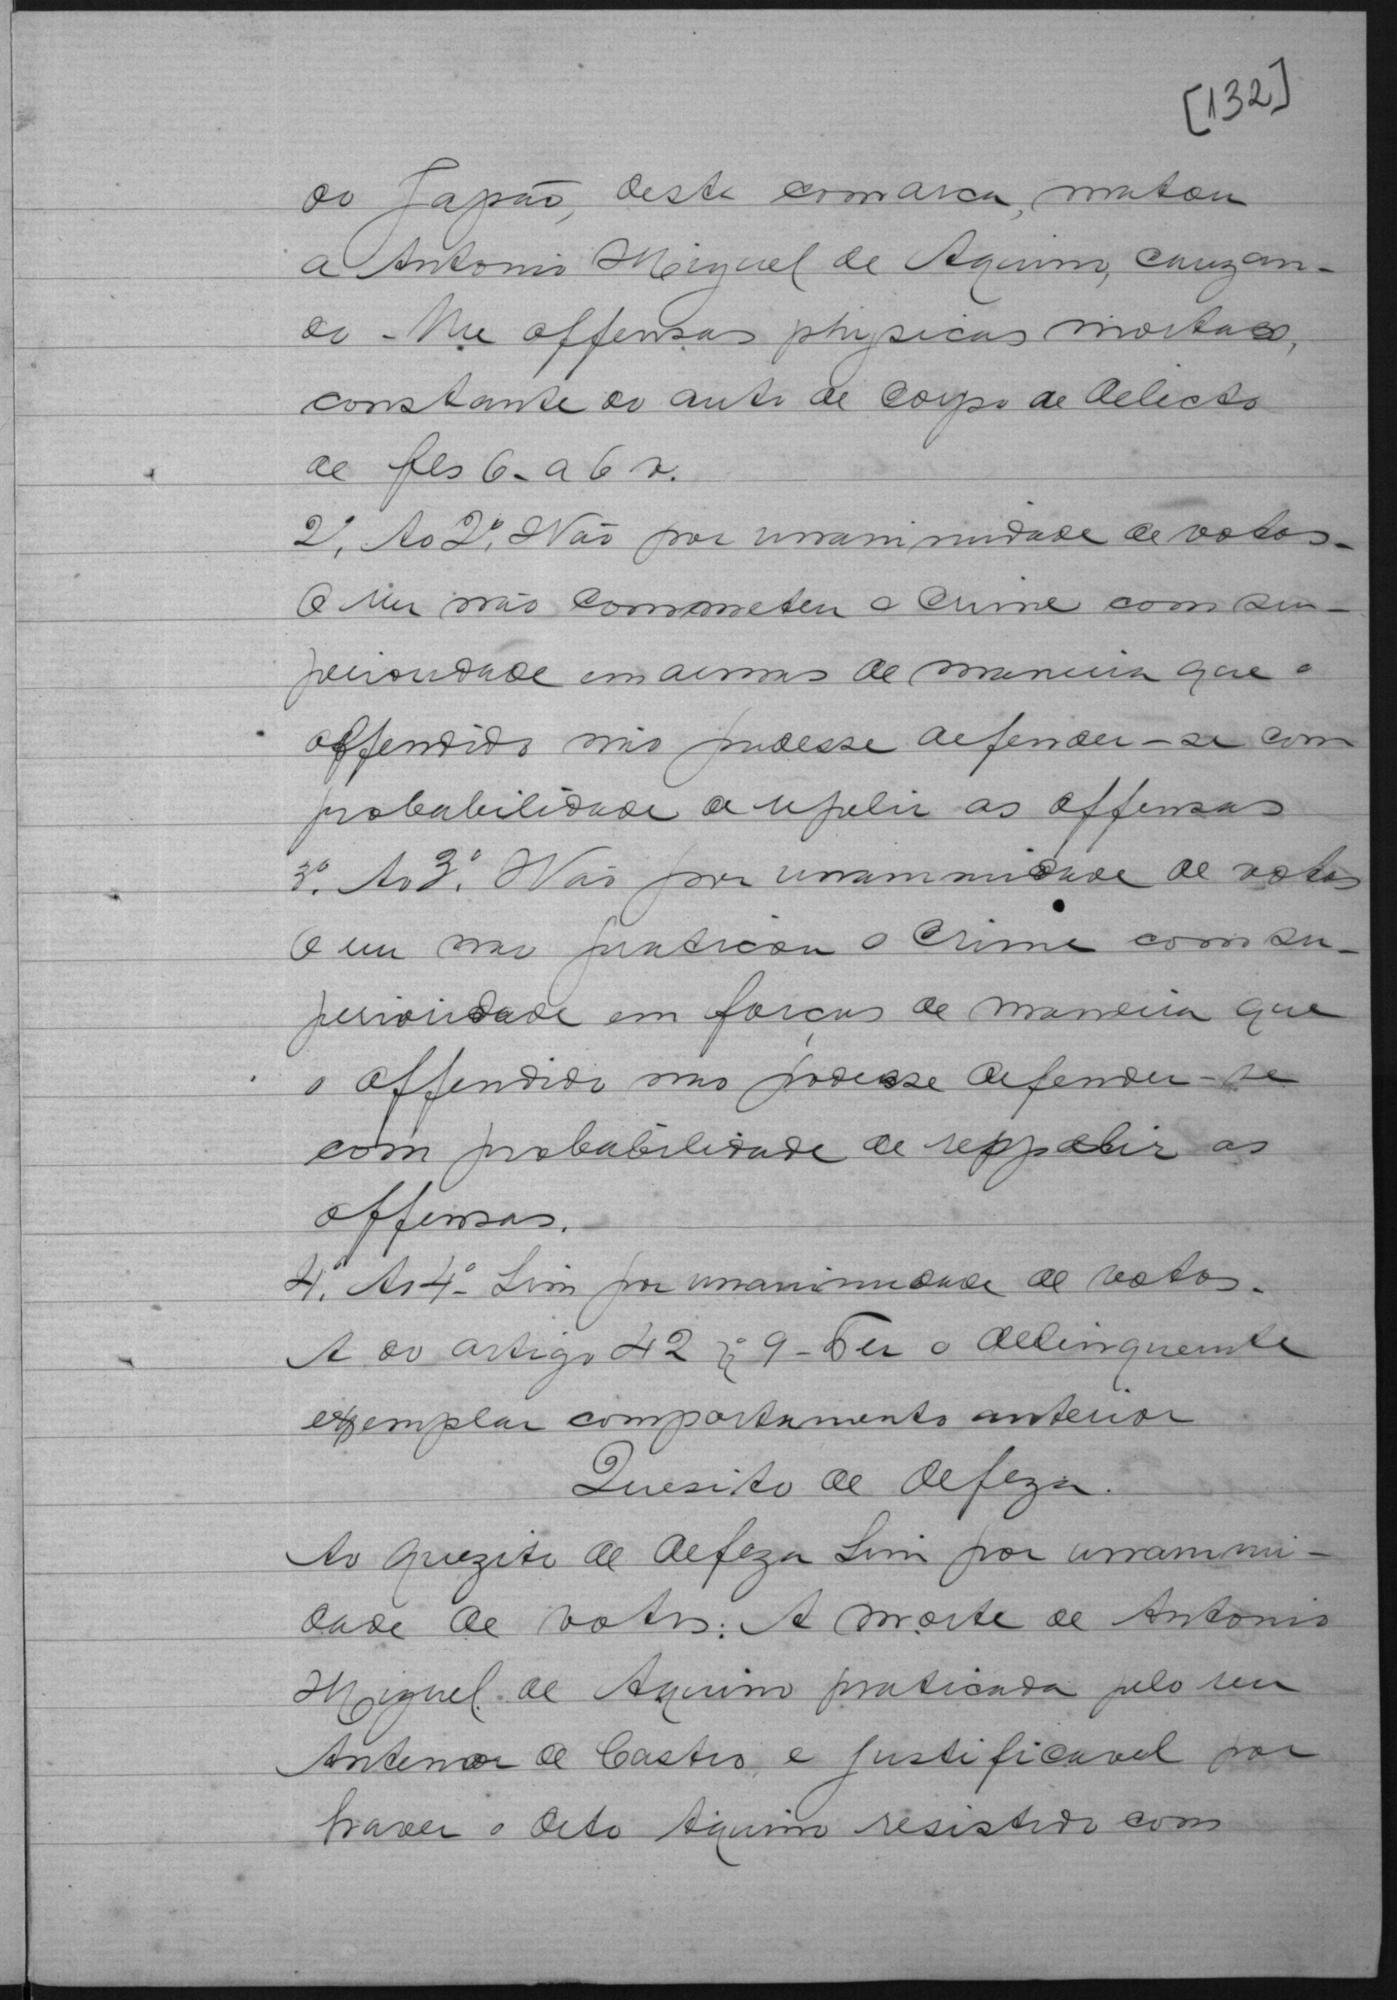 [132]
do Japão, desta comarca, matou
a Antonio Miguel de Aquino, cauzan-
do-lhe offensas physicas mortaes,
constante do auto de corpo de delicto
de fls 6-a 6 v.
2º. Ao 2º. Não por unanimidade de votos-
O réu não commeteu o crime com su-
perioridade em armas de maneira que o
offendido não pudesse defender-se com
probabilidade de repelir as offensas
3º. Ao 3º. Não por unanimidade de votos
O reu não praticou o crime com su-
perioridade em forças de maneira que
o offendido não podesse defender-se
com probabilidade de reppelir as
offensas.
4º. Ao 4º- Sim por unanimidade de votos-
A do artigo 42 § 9- Ter o delinquente
exemplar comportamento anterior
Quesito de defeza.
Ao quezito de defeza Sim por unanimi-
dade de votos: A morte de Antonio
Miguel de Aquino praticada pelo reu
Antenor de Castro, e justificavel por
haver o dito Aquino resistido com